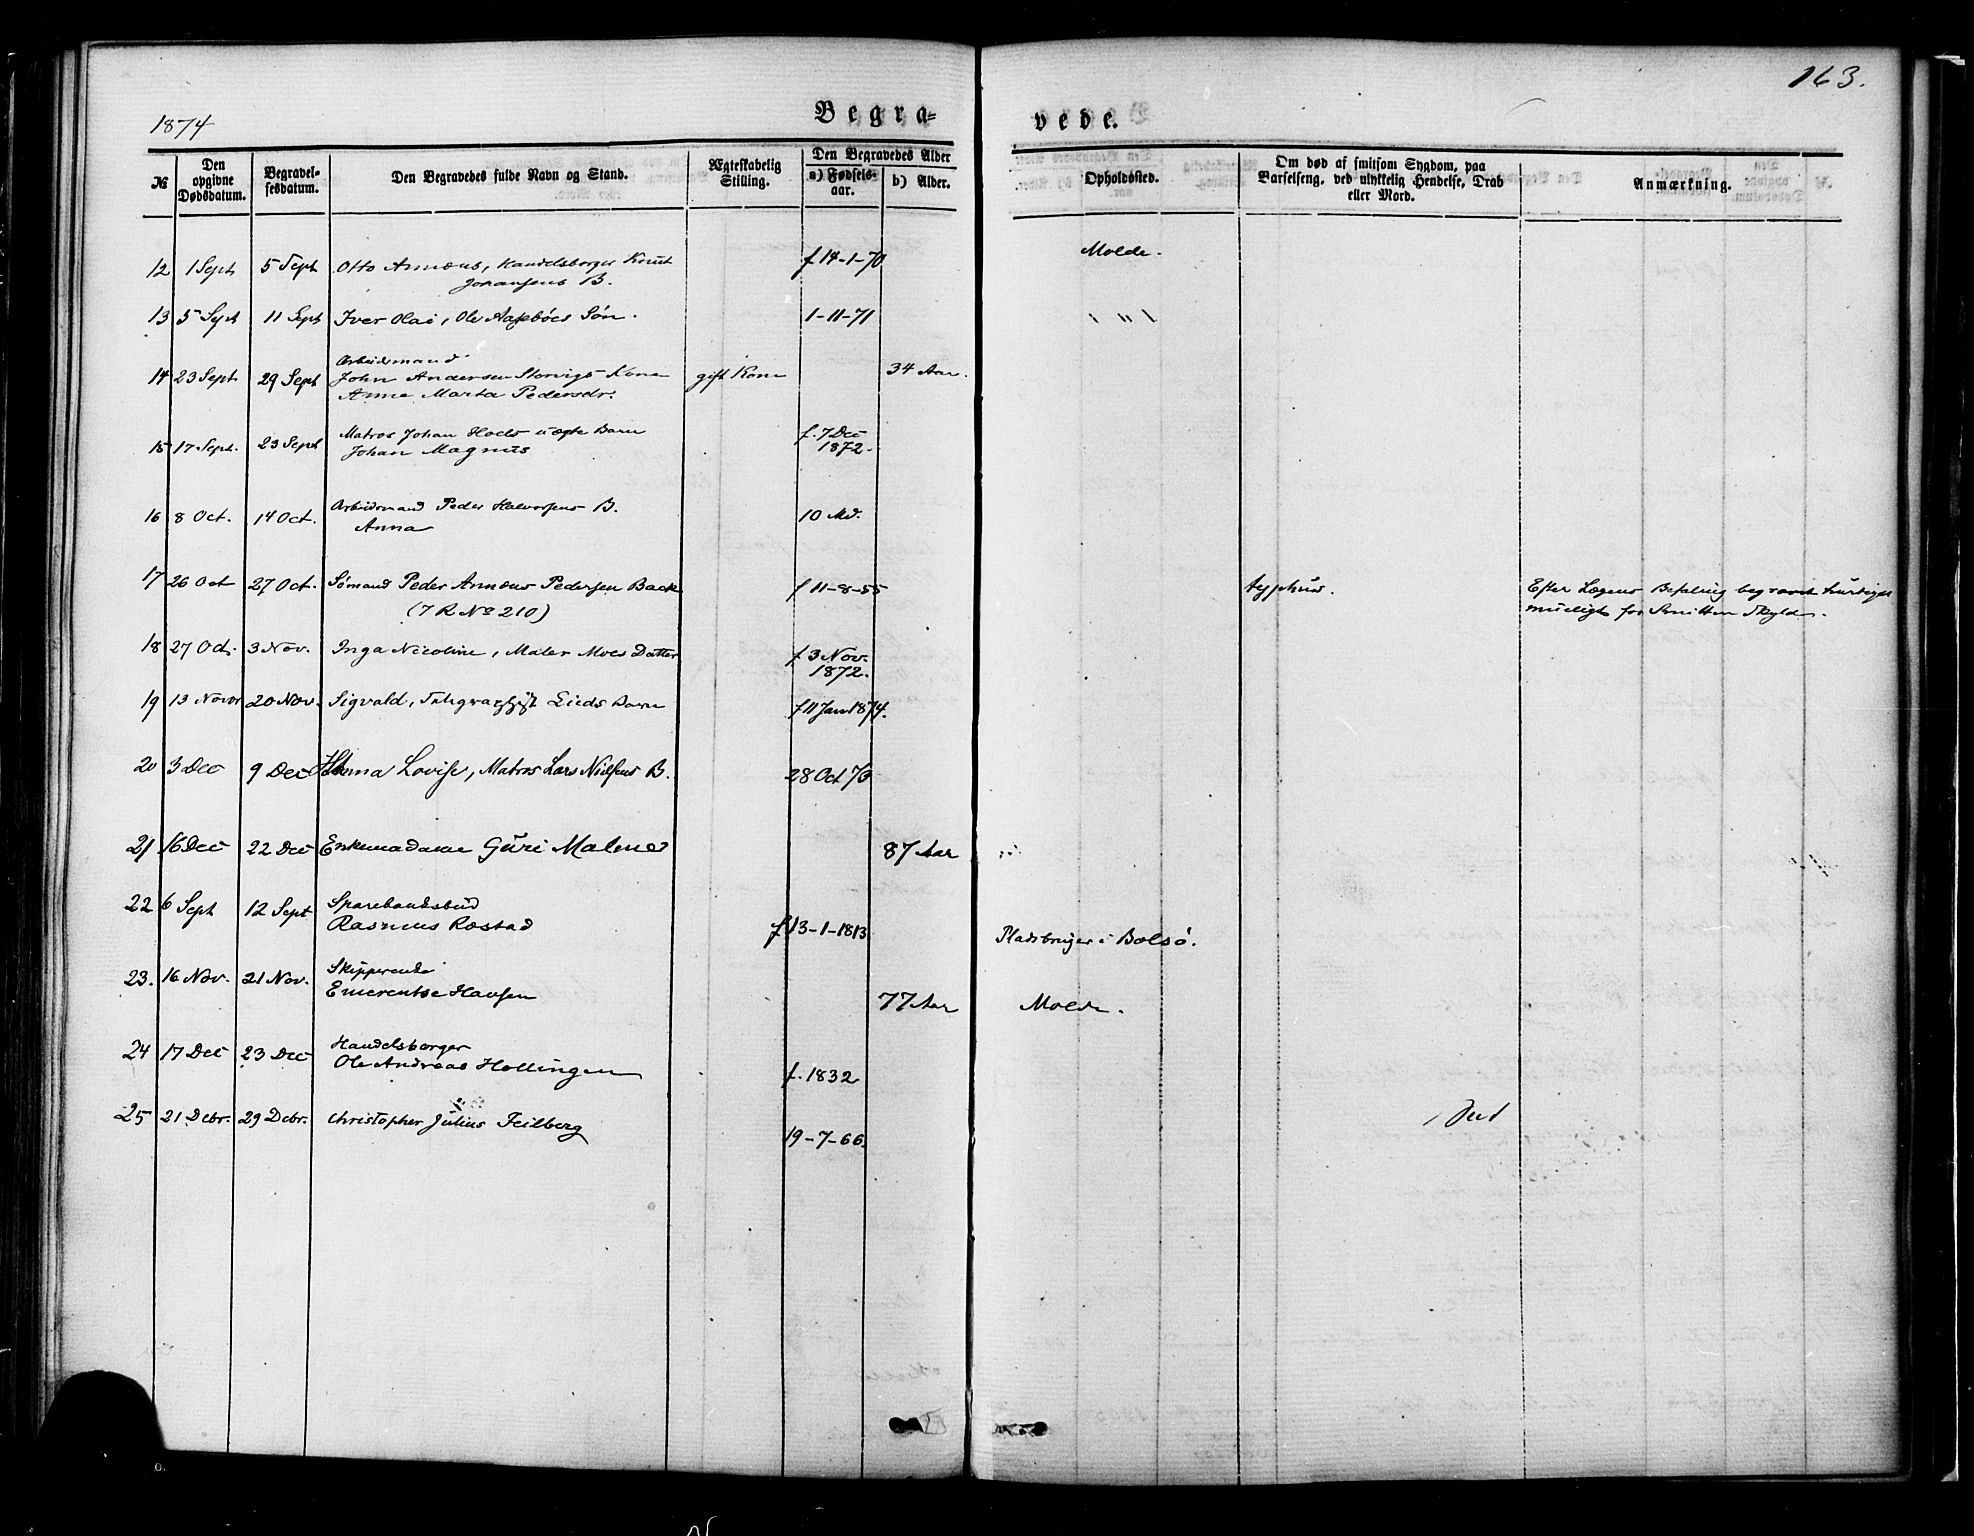 163.
1874
Begra-
vede.
№
Den opgivne Dødsdatum.
Begravelsesdatum.
Den Begravedes fulde Navn og Stand.
Ægteskabelig Stilling.
Den Begravedes Alder
a) Fødselsaar.
b) Alder.
Opholdssted.
Om død af smitsom Sygdom, paa Barselseng, ved ulykkelig Hendelse, Drab eller Mord.
Anmærkning.
12 1 Sept 5 Sept Otto Annæus, Handelsborger Knut f 14-1-70 Molde.
Johansens B.
13 5 Sept 11 Sept Iver Olai, Ole Aakbøes Søn. 1-11-71 " "
Arbeidsmand
14 23 Sept 29 Sept John Andersen Storvigs Kone gift Kone 34 Aar.
Anne Marta Pedersdr.
15 17 Sept. 23 Sept Matros Johan Hoels uægte Barn f. 7 Dec
Johan Magnus 1872.
16 8 Oct. 14 Oct. Arbeidsmand Peder Halvorsens B. 10 Md.
Anna
17 26 Oct 27 Oct. Sømand Peder Annæus Pedersen Back f 11-8-55 typhus. Efter Lægens Befaling begravet hurtigst
(7 R No 210) mueligt for Smittens Skyld.
18 27 Oct. 3 Nov. Inga Nicoline, Maler Moes Datter f 3 Nov.
1872.
19 13 Novr 20 Nov. Sigvald, Telegrafist Lieds Barn f 11 Jan 1874.
20 3 Dec 9 Dec Lovise, Matros Lars Nielsens B. 28 Oct 70
21 16 Dec 22 Dec Enkemadame Guri Malmes 87 Aar
22 6 Sept 12 Sept Sparebanksbud
Rasmus Røstad f 13-1-1813 Pladsbruger i Bolsø.
23. 16 Nov. 21 Nov. Skipperenke
Emerentse Hansen 77 Aar Molde.
24 17 Dec 23 Dec Handelsborger
Ole Andreas Hollingen f. 1832
25 21 Debr. 29 Debr. Christopher Julius Feilberg 19-7-66.